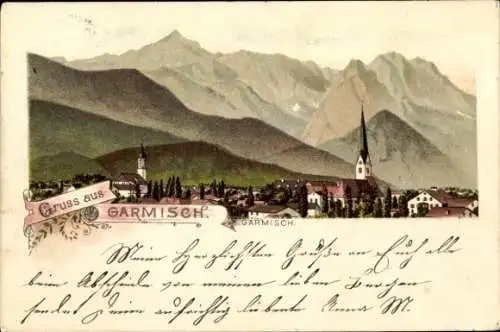 Gruss aus
GARMISCH.
GARMISCH.
Meine herzlichsten Grüße an Euch alle
beim Abschiede von meinen lieben Bergen
sendet Deine aufrichtig liebende Anna M.